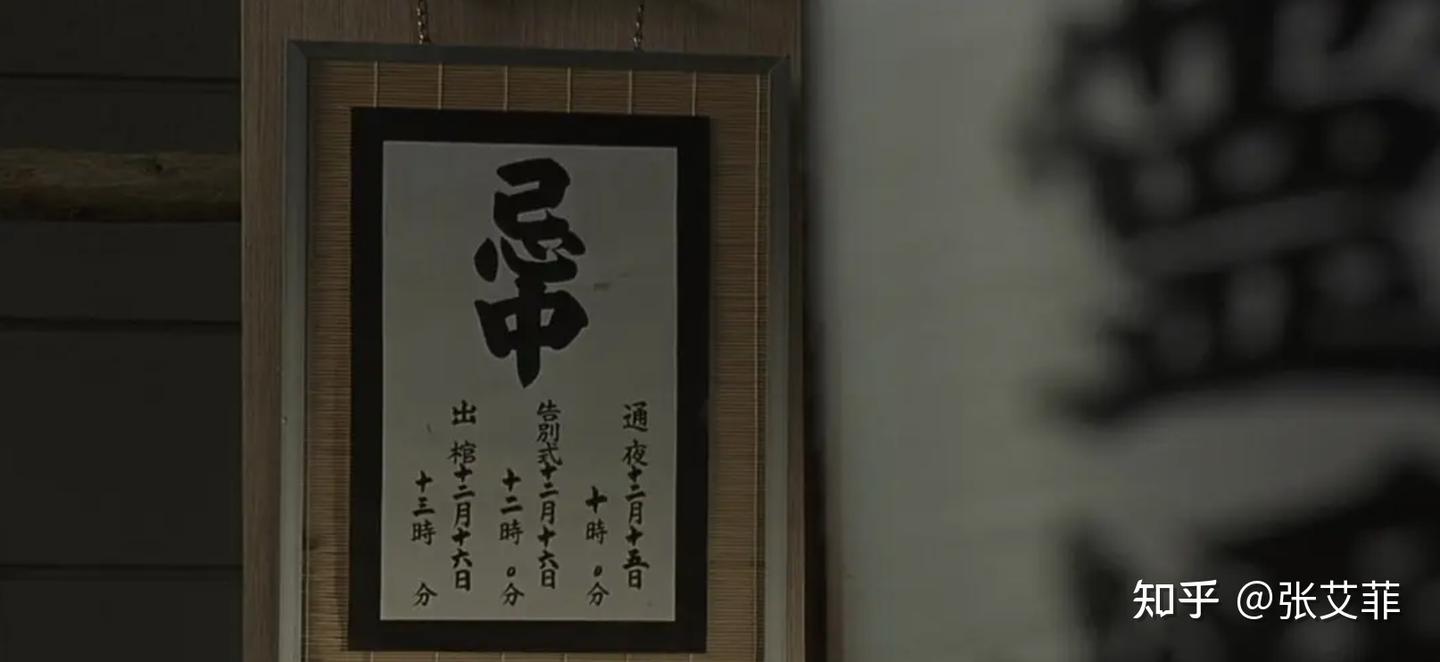 忌中
通夜十二月十五日
十時0分
告別式十二月十六日
十二時0分
出棺十二月十六日
十三時 分
知乎 @张艾菲